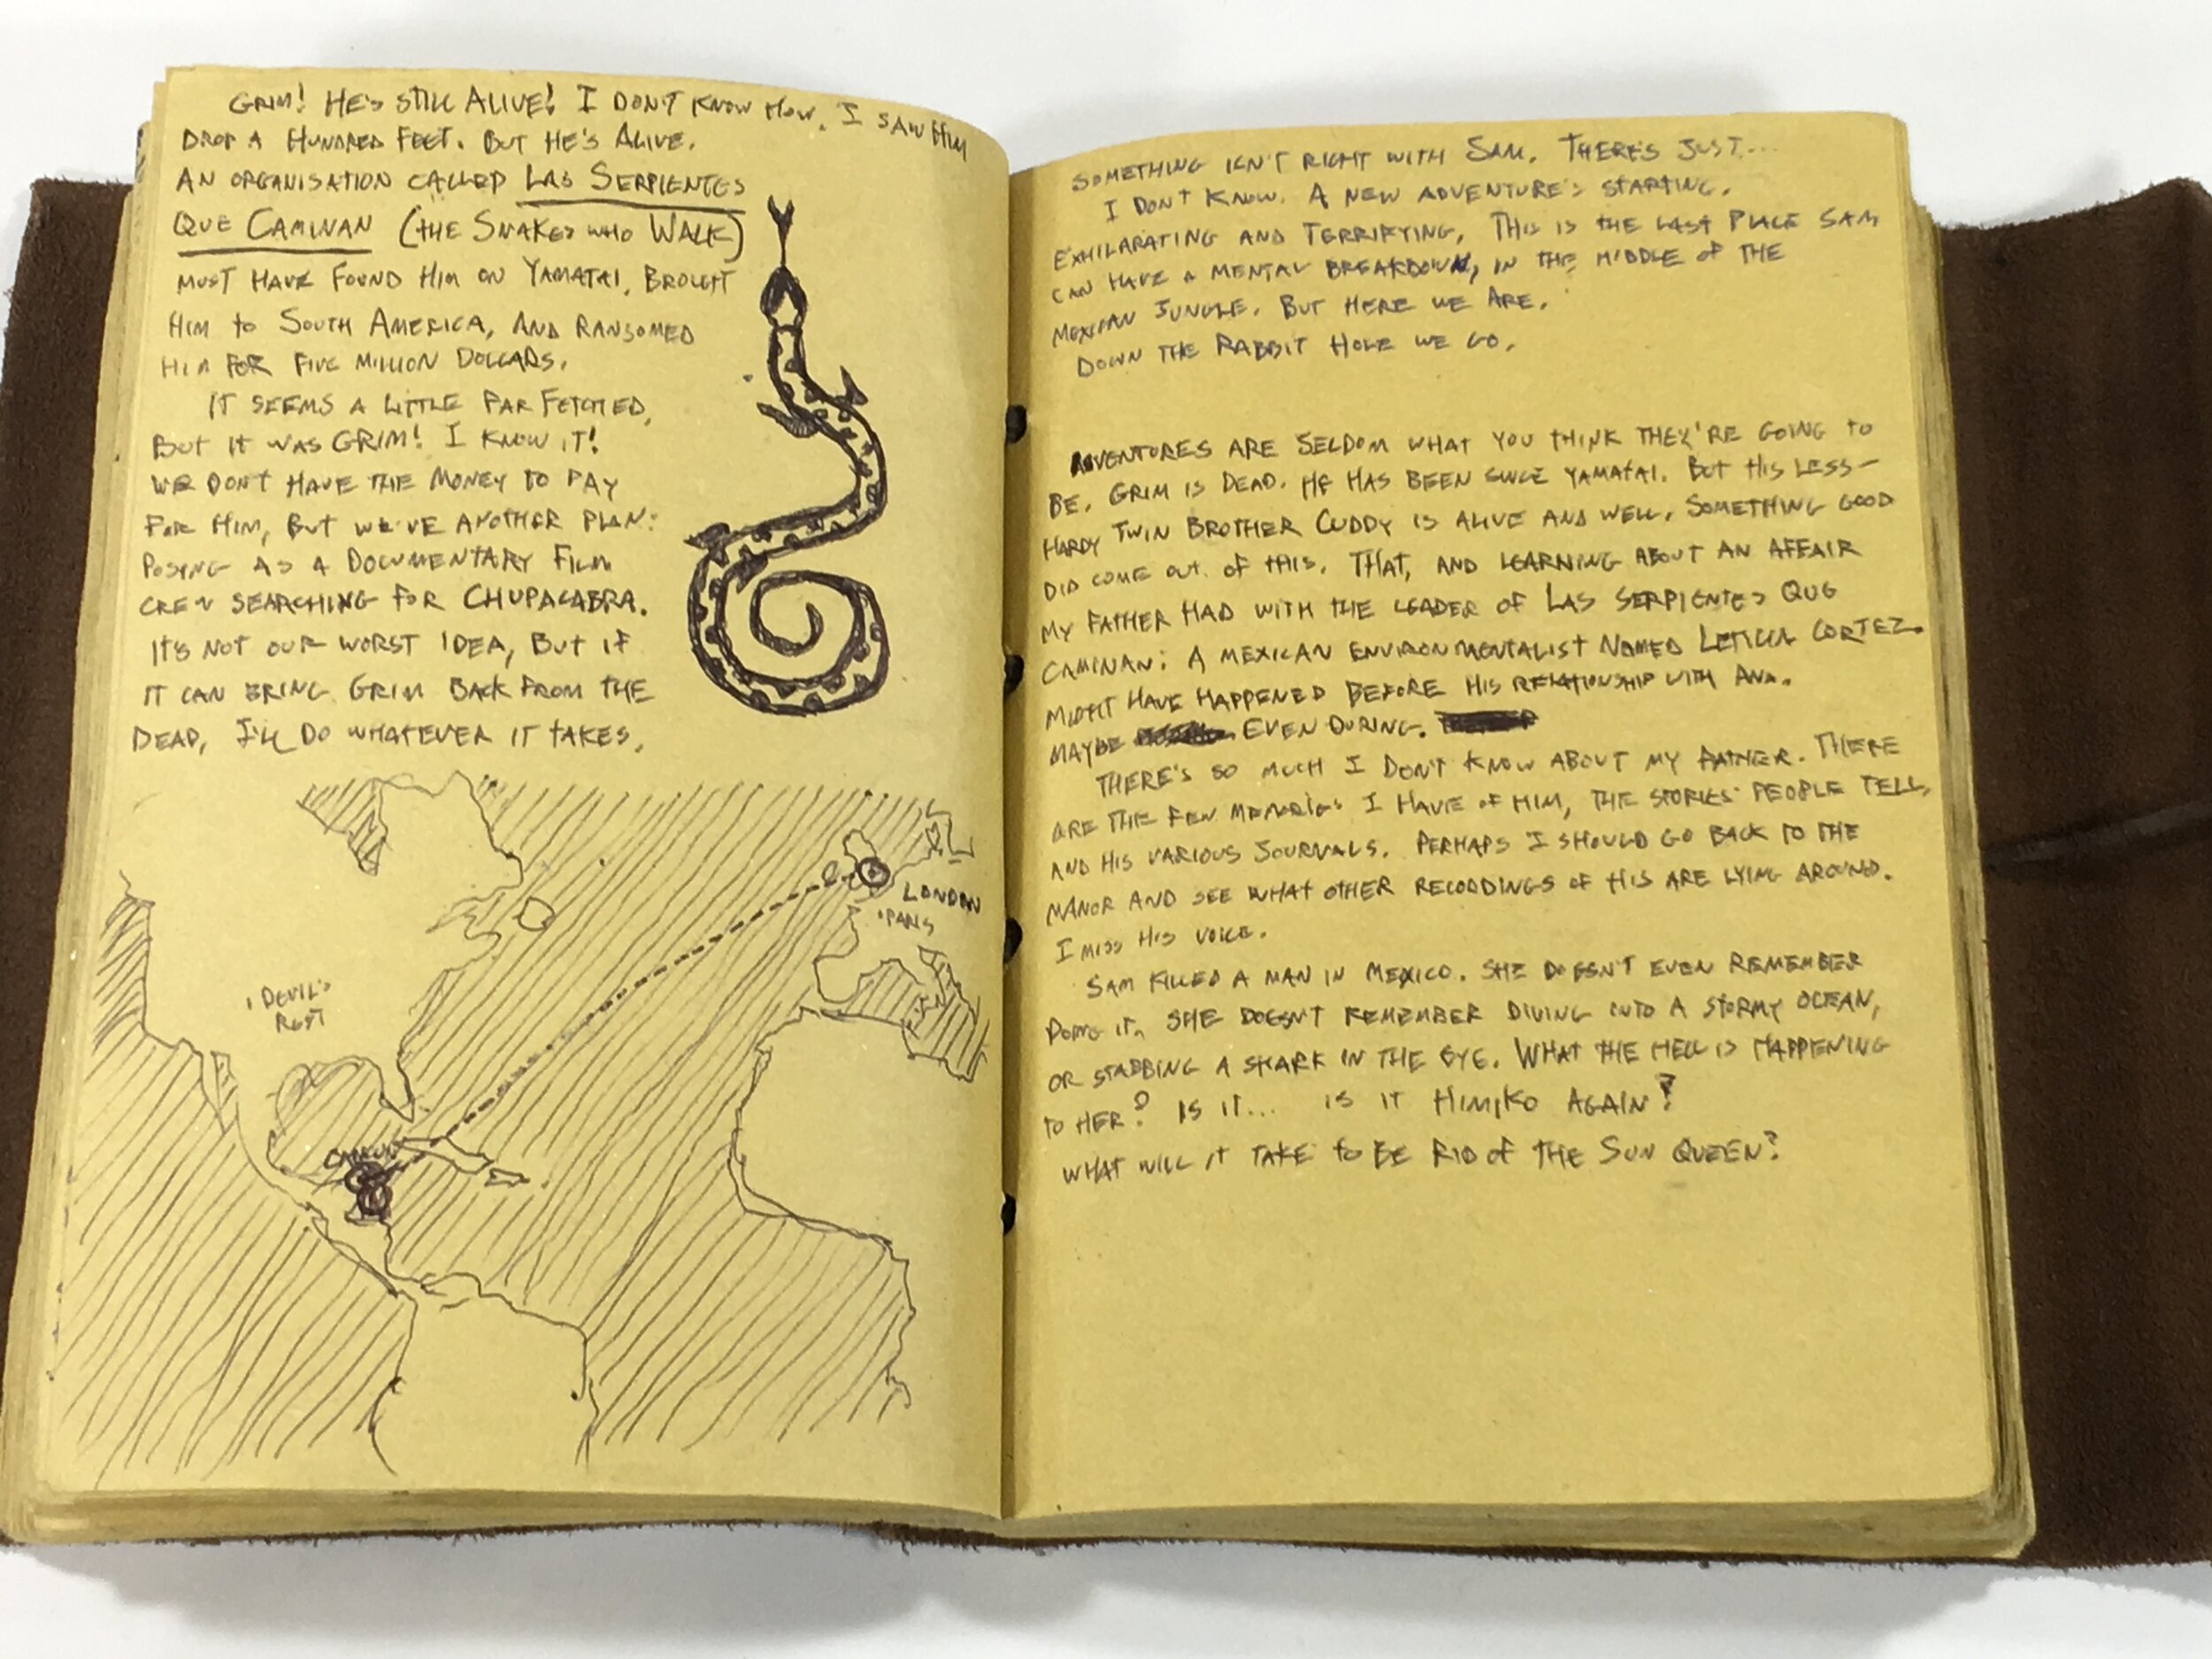 GRIM! HE'S STILL ALIVE! I DON'T KNOW HOW. I SAW HIM
DROP A HUNDRED FEET. BUT HE'S ALIVE.
AN ORGANISATION CALLED LAS SERPIENTES
QUE CAMINAN (THE SNAKES WHO WALK)
MUST HAVE FOUND HIM ON YAMATAI, BROUGHT
HIM TO SOUTH AMERICA, AND RANSOMED
HIM FOR FIVE MILLION DOLLARS.
IT SEEMS A LITTLE FAR FETCHED,
BUT IT WAS GRIM! I KNOW IT!
WE DON'T HAVE THE MONEY TO PAY
FOR HIM, BUT WE'VE ANOTHER PLAN:
POSING AS A DOCUMENTARY FILM
CREW SEARCHING FOR CHUPACABRA.
IT'S NOT OUR WORST IDEA, BUT IF
IT CAN BRING GRIM BACK FROM THE
DEAD, I'LL DO WHATEVER IT TAKES.
LONDON
PARIS
DEVIL'S
CANCUN
SOMETHING ISN'T RIGHT WITH SAM. THERE'S JUST...
I DON'T KNOW. A NEW ADVENTURE'S STARTING.
EXHILARATING AND TERRIFYING. THIS IS THE LAST PLACE SAM
CAN HAVE A MENTAL BREAKDOWN, IN THE MIDDLE OF THE
MEXICAN JUNGLE. BUT HERE WE ARE.
DOWN THE RABBIT HOLE WE GO.
ADVENTURES ARE SELDOM WHAT YOU THINK THEY'RE GOING TO
BE. GRIM IS DEAD. HE HAS BEEN SINCE YAMATAI. BUT HIS LESS-
HARDY TWIN BROTHER CUDDY IS ALIVE AND WELL. SOMETHING GOOD
DID COME OUT OF THIS. THAT, AND LEARNING ABOUT AN AFFAIR
MY FATHER HAD WITH THE LEADER OF LAS SERPIENTES QUE
CAMINAN: A MEXICAN ENVIRONMENTALIST NAMED LETICIA CORTEZ.
MIGHT HAVE HAPPENED BEFORE HIS RELATIONSHIP WITH ANA.
MAYBE EVEN DURING.
THERE'S SO MUCH I DON'T KNOW ABOUT MY FATHER. THERE
ARE THE FEW MEMORIES I HAVE OF HIM, THE STORIES PEOPLE TELL,
AND HIS VARIOUS JOURNALS. PERHAPS I SHOULD GO BACK TO THE
MANOR AND SEE WHAT OTHER RECORDINGS OF HIS ARE LYING AROUND.
I MISS HIS VOICE.
SAM KILLED A MAN IN MEXICO. SHE DOESN'T EVEN REMEMBER
DOING IT. SHE DOESN'T REMEMBER DIVING INTO A STORMY OCEAN,
OR STABBING A SHARK IN THE EYE. WHAT THE HELL IS HAPPENING
TO HER? IS IT... IS IT HIMIKO AGAIN?
WHAT WILL IT TAKE TO BE RID OF THE SUN QUEEN?